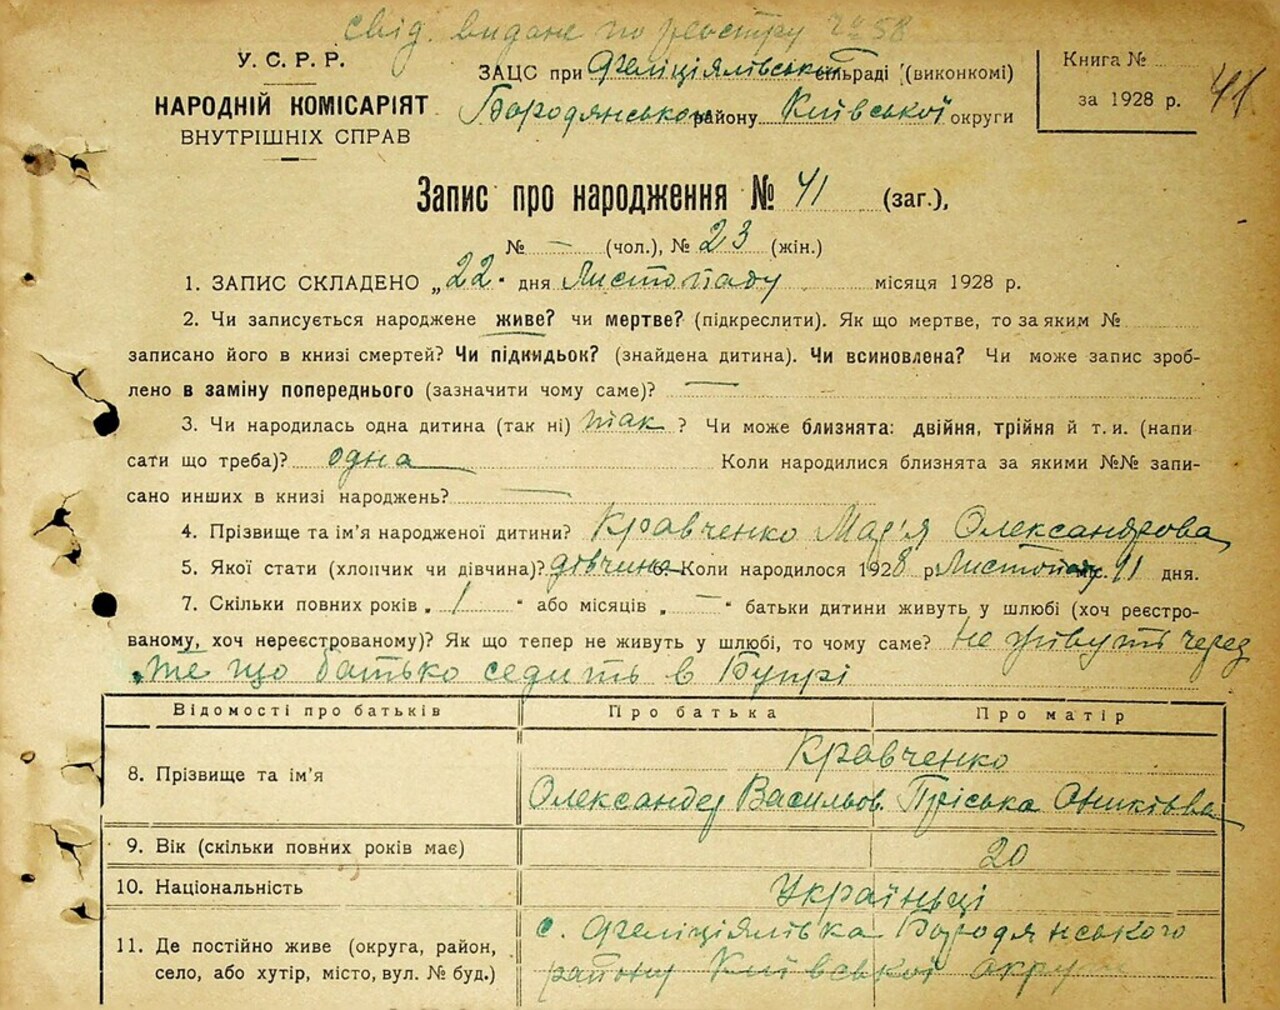 свід. видане по реєстру № 58
У. С. Р. Р.
НАРОДНІЙ КОМІСАРІЯТ
ВНУТРІШНІХ СПРАВ
ЗАЦС при Феліціялівській сільраді (виконкомі)
Бородянського району Київської округи
Книга №
за 1928 р.
41
Запис про народження № 41 (заг.),
№ — (чол.), № 23 (жін.)
1. ЗАПИС СКЛАДЕНО „22" дня Листопаду місяця 1928 р.
2. Чи записується народжене живе? чи мертве? (підкреслити). Як що мертве, то за яким №
записано його в книзі смертей? Чи підкидьок? (знайдена дитина). Чи всиновлена? Чи може запис зроб-
лено в заміну попереднього (зазначити чому саме)? —
3. Чи народилась одна дитина (так ні) так ? Чи може близнята: двійня, трійня й т. и. (напи
сати що треба)? одна Коли народилися близнята за якими №№ запи-
сано инших в книзі народжень? —
4. Прізвище та ім'я народженої дитини? Кравченко Мар'я Олександрова
5. Якої стати (хлопчик чи дівчина)? дівчина Коли народилося 1928 р. Листопаду міс. 11 дня.
7. Скільки повних років „ 1 " або місяців „ — " батьки дитини живуть у шлюбі (хоч реєстро-
ваному, хоч нереєстрованому)? Як що тепер не живуть у шлюбі, то чому саме? не живуть через
те що батько седить в Бупрі
Відомості про батьків Про батька Про матір
8. Прізвище та ім'я Кравченко
Олександер Васильов. Пріська Оникієва
9. Вік (скільки повних років має) 20
10. Національність Україньці
11. Де постійно живе (округа, район, с. Феліціялівка Бородянського
село, або хутір, місто, вул. № буд.) району Київської округи